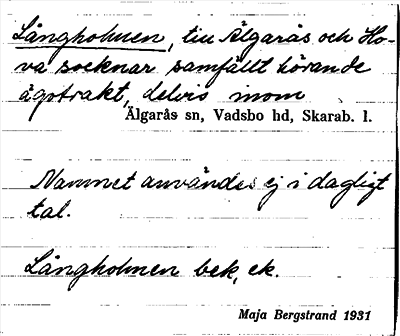 Långholmen, till Älgarås och Ho-
va socknar samfällt hörande
ägotrakt, delvis inom
Älgarås sn, Vadsbo hd, Skarab. l.
Namnet användes ej i dagligt
tal.
Långholmen bek, ek.
Maja Bergstrand 1931